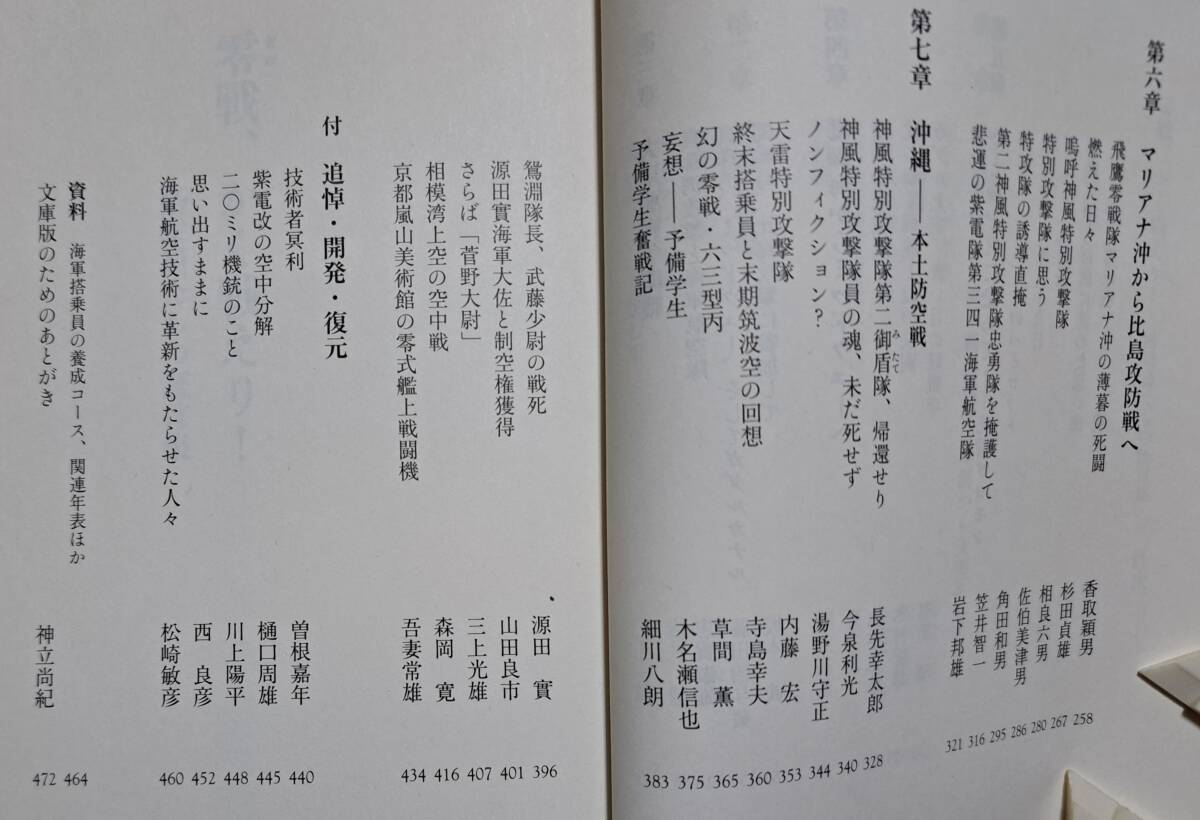 第六章 マリアナ沖から比島攻防戦へ
飛鷹零戦隊マリアナ沖の薄暮の死闘 香取穎男 258
燃えた日々 杉田貞雄 267
嗚呼神風特別攻撃隊 相良六男 280
特別攻撃隊に思う 佐伯美津男 286
特攻隊の誘導直掩 角田和男 295
第二神風特別攻撃隊忠勇隊を掩護して 笠井智一 316
悲運の紫電隊第三四一海軍航空隊 岩下邦雄 321
第七章 沖縄――本土防空戦
神風特別攻撃隊第二御盾隊、帰還せり 長先幸太郎 328
みたて
神風特別攻撃隊員の魂、未だ死せず 今泉利光 340
ノンフィクション? 湯野川守正 344
天雷特別攻撃隊 内藤 宏 353
終末搭乗員と末期筑波空の回想 寺島幸夫 360
幻の零戦・六三型丙 草間 薫 365
妄想――予備学生 木名瀬信也 375
予備学生奮戦記 細川八朗 383
鴛淵隊長、武藤少尉の戦死 源田 實 396
源田實海軍大佐と制空権獲得 山田良市 401
さらば「菅野大尉」 三上光雄 407
相模湾上空の空中戦 森岡 寛 416
京都嵐山美術館の零式艦上戦闘機 吾妻常雄 434
付 追悼・開発・復元
技術者冥利 曽根嘉年 440
紫電改の空中分解 樋口周雄 445
二〇ミリ機銃のこと 川上陽平 448
思い出すままに 西 良彦 452
海軍航空技術に革新をもたらせた人々 松崎敏彦 460
資料 海軍搭乗員の養成コース、関連年表ほか 464
文庫版のためのあとがき 神立尚紀 472